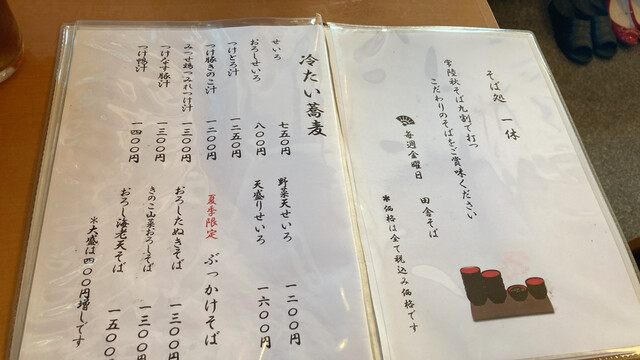 そば処 一休
常陸秋そば九割で打つ
こだわりのそばをご賞味ください
毎週金曜日 田舎そば
*価格は全て税込み価格です
冷たい蕎麦
せいろ 七五〇円
おろしせいろ 八〇〇円
つけとろ汁 一二五〇円
つけ豚きのこ汁 一二〇〇円
みつせ鶏つみれつけ汁 一三〇〇円
つけなす豚汁 一三〇〇円
つけ鴨汁 一四〇〇円
野菜天せいろ 一二〇〇円
天盛りせいろ 一六〇〇円
夏季限定 ぶっかけそば
おろしたぬきそば 一三〇〇
きのこ山菜おろしそば 一三〇〇
おろし海老天そば 一五〇〇
*大盛は四〇〇円増しです